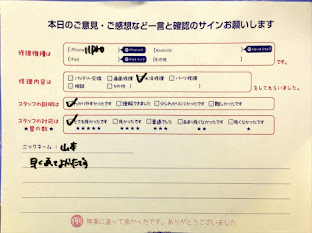 本日のご意見・ご感想など一言と確認のサインお願いします
修理機種は
iPhone 11pro
Android
iPad
その他
です。
修理内容は
バッテリー交換 画面修理 水没修理 パーツ修理
相談 その他
をしてもらいました。
スタッフの説明は
わかりやすかったです 理解できました 少しわかりにくかった 難しかったです
スタッフの対応は
★星の数★
とても良かったです 良かったです 普通でした あまり良くなかったです 良くなかったです
★★★★★ ★★★★ ★★★ ★★ ★
ニックネーム： 山本
早く直ってよかったです
修理に達って良かったです。ありがとうございました